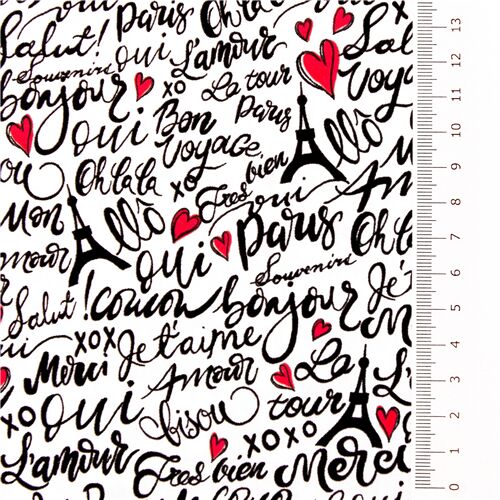 Paris Oh la
Salut! oui L'amour Sal
Souvenirs xo La tour Voya
bonjour Bon Paris
oui Voyage Allô
ou Oh la la xo Tres bien Am
Mon Allô oui Paris Oh l
mour oui Souvenirs
Salut! coucou bonjour Je
ui xoxo Je t'aime m
Merci Amour La L'
xo oui bisou tour
L'amour Tres bien xoxo Merci
13
12
11
10
9
8
7
6
5
4
3
2
1
0